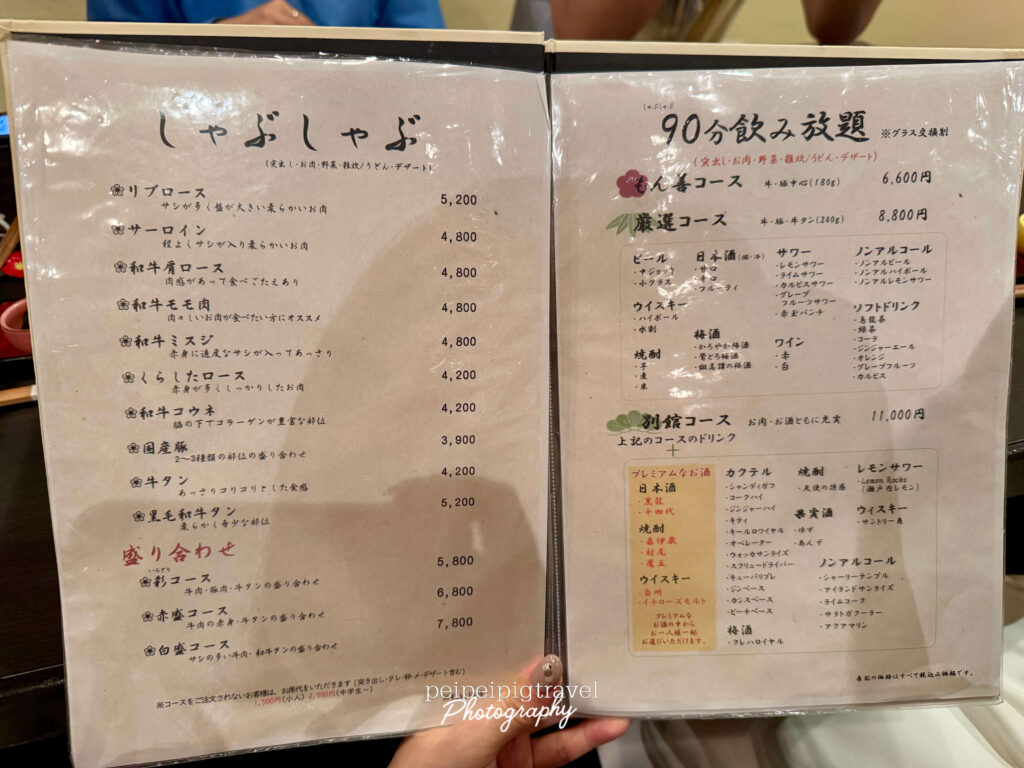 しゃぶしゃぶ
(突出し・お肉・野菜・雑炊/うどん・デザート)
リブロース 5,200
サシが多く盤が大きい柔らかいお肉
サーロイン 4,800
程よくサシが入り柔らかいお肉
和牛肩ロース 4,800
肉感があって食べごたえあり
和牛モモ肉 4,800
肉々しいお肉が食べたい方にオススメ
和牛ミスジ 4,800
赤身に適度なサシが入ってあっさり
くらしたロース 4,200
赤身が多くしっかりしたお肉
和牛コウネ 4,200
脇の下でコラーゲンが豊富な部位
国産豚 3,900
2～3種類の部位の盛り合わせ
牛タン 4,200
あっさりコリコリとした食感
黒毛和牛タン 5,200
柔らかく希少な部位
盛り合わせ
いろどり
彩コース 5,800
牛肉・豚肉・牛タンの盛り合わせ
赤盛コース 6,800
牛肉の赤身・牛タンの盛り合わせ
白盛コース 7,800
サシの多い牛肉・和牛タンの盛り合わせ
※コースをご注文されないお客様は、お席代をいただきます(突き出し・タレ・卵・〆・デザート含む)
1,500円(小人) 2,500円(中学生～)
しゃぶしゃぶ
90分飲み放題 ※グラス交換制
(突出し・お肉・野菜・雑炊/うどん・デザート)
もん善コース 牛・豚中心(180g) 6,600円
厳選コース 牛・豚・牛タン(240g) 8,800円
ビール
・中ジョッキ
・小グラス
ウイスキー
・ハイボール
・水割
焼酎
・芋
・麦
・米
日本酒(燗・冷)
・サロ
・フルーティ
梅酒
・かろやか梅酒
・鶯とろ梅酒
サワー
・レモンサワー
・ライムサワー
・カルピスサワー
・グレープ
フルーツサワー
・赤玉パンチ
ワイン
・赤
・白
ノンアルコール
・ノンアルビール
・ノンアルハイボール
・ノンアルレモンサワー
ソフトドリンク
・烏龍茶
・緑茶
・コーラ
・ジンジャーエール
・オレンジ
・グレープフルーツ
・カルピス
別館コース お肉・お酒ともに充実 11,000円
上記のコースのドリンク
+
プレミアムなお酒
日本酒
・黒龍
・十四代
焼酎
・森伊蔵
・村尾
・魔王
ウイスキー
・白州
・イチローズモルト
プレミアムな
お酒の中から
お一人様一杯
お選びいただけます。
カクテル
・シャンディガフ
・コークハイ
・ジンジャーハイ
・キティ
・キールロワイヤル
・オペレーター
・ウォッカサンライズ
・スクリュードライバー
・キューバリブレ
・ジンベース
・カシスベース
・ピーチベース
梅酒
・クレハロイヤル
焼酎
・天使の誘惑
果実酒
・ゆず
・あんず
ノンアルコール
・シャーリーテンプル
・アイランドサンライズ
・ライムコーク
・サラトガクーラー
・アクアマリン
レモンサワー
・Lemon Rocks
(瀬戸内レモン)
ウィスキー
・サントリー角
表記の価格はすべて税込み価格です。
peipeipigtravel
Photography